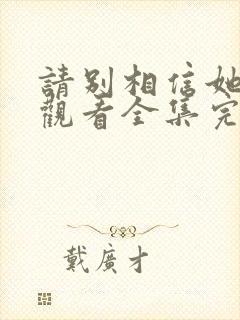 請別相信她
觀看全集完
戴廣才